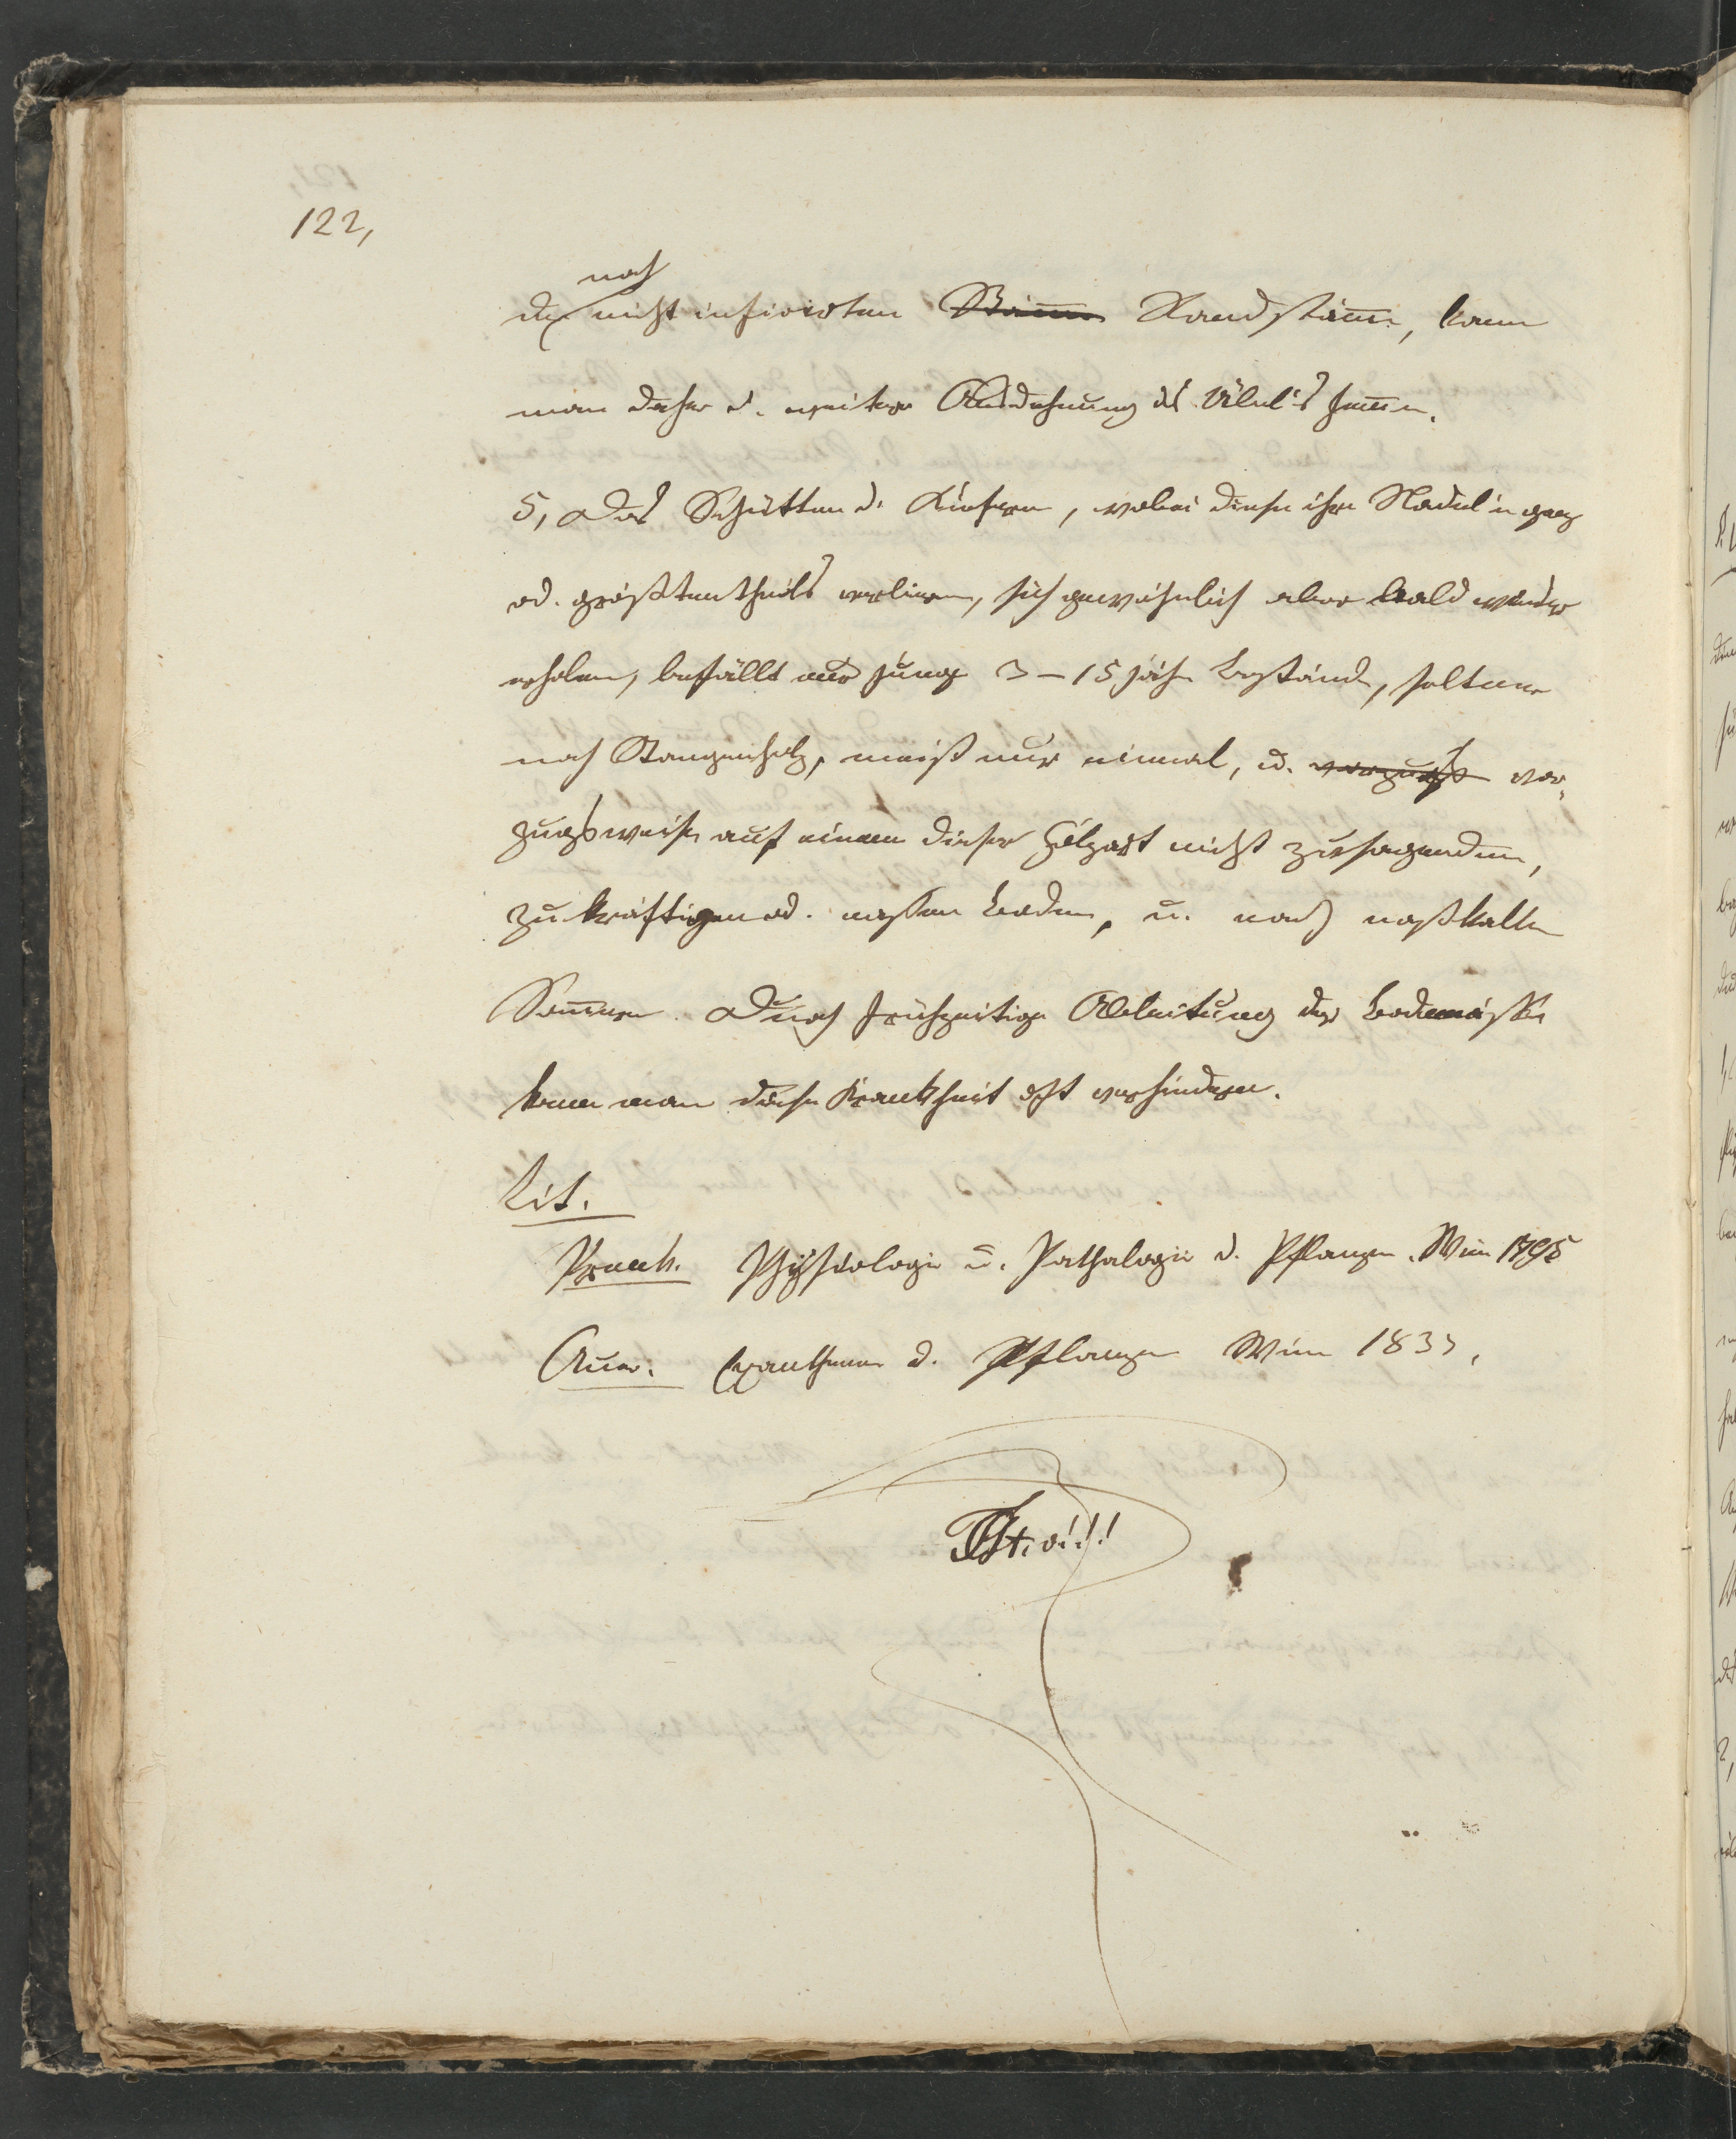 122,
noch
der nicht inficirten Stämme Randstämme, kann
man daher d. weitere Ausdehnung des Übel's hemmen.
5, Das Schütten d. Kiefern, wobei diese ihre Nadeln ganz
od. größtentheils verlieren, sich gewöhnlich aber bald wieder
erholen, befällt nur junge 3–15 jähr Bestände, seltener
noch Stangenholz, meist nur einmal, u. vor-
zugsweise auf einem dieser Holzart nicht zusagenden,
zu kräftigen od. nassen Boden, u. nach naßkalten
Sommern. Durch frühzeitige Ableitung der Bodennässe
kann man diese Krankheit oft verhindern.
Lit.
Plenck. Physiologie u. Pathologie d. Pflanzen. Wien 1795
Unger. Exantheme d. Pflanzen Wien 1833,